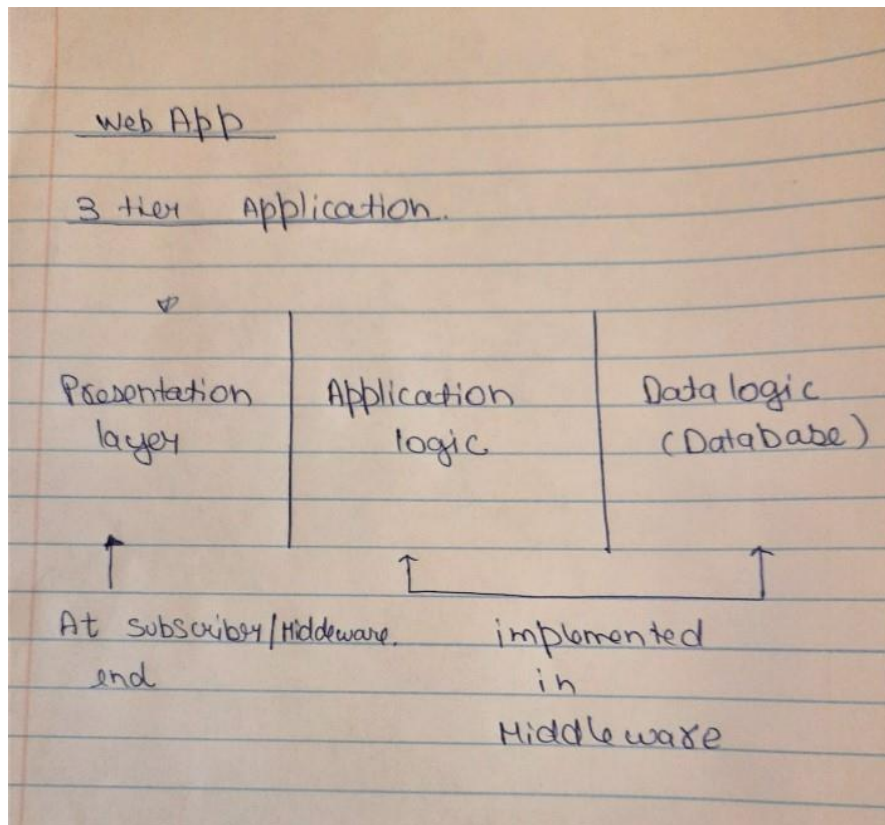 Web App
3 tier Application.
Presentation
layer
Application
logic
Data logic
(Database)
At subscriber/Middeware.
end
implemented
in
Middleware